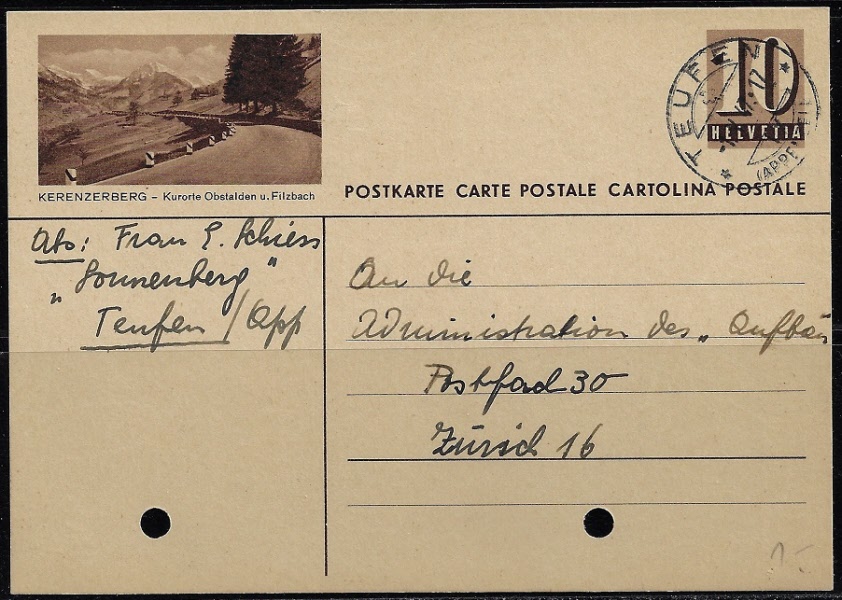 KERENZERBERG – Kurorte Obstalden u. Filzbach
10
HELVETIA
TEUFEN
(APPENZELL)
POSTKARTE CARTE POSTALE CARTOLINA POSTALE
Abs: Frau E. Schiess
„Sonnenberg"
Teufen / App
An die
Administration des „Aufbau
Postfach 30
Zürich 16
1.-